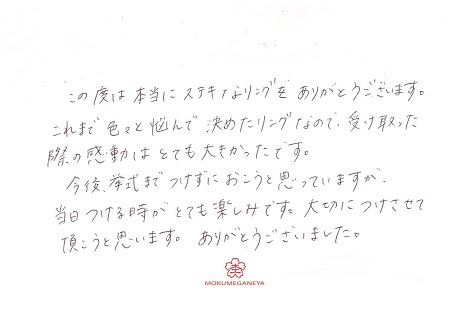 この度は本当にステキなリングをありがとうございます。
これまで色々と悩んで決めたリングなので、受け取った
際の感動はとても大きかったです。
今後、挙式までつけずにおこうと思っていますが、
当日つける時がとても楽しみです。大切につけさせて
頂こうと思います。ありがとうございました。
MOKUMEGANEYA